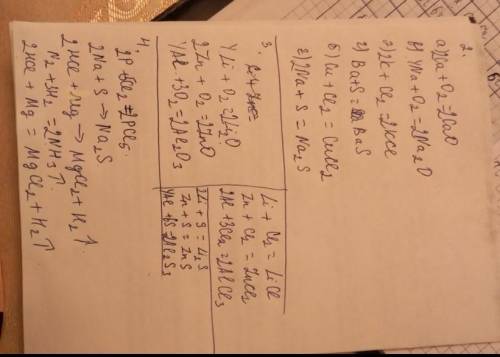 2.
a) 2Ba + O2 = 2BaO
б) 4Na + O2 = 2Na2O
в) 2K + Cl2 = 2KCl
г) Ba + S = BaS
б) Cu + Cl2 = CuCl2
г) 2Na + S = Na2S
3.
4Li + O2 = 2Li2O
2Zn + O2 = 2ZnO
4Al + 3O2 = 2Al2O3
Li + Cl2 = LiCl
Zn + Cl2 = ZnCl2
2Al + 3Cl2 = 2AlCl3
2Li + S = Li2S
Zn + S = ZnS
4Al + 6S = 2Al2S3
4.
2P + 5Cl2 = 2PCl5.
2Na + S → Na2S
2HCl + Mg → MgCl2 + H2↑
N2 + 3H2 = 2NH3↑
2HCl + Mg = MgCl2 + H2↑